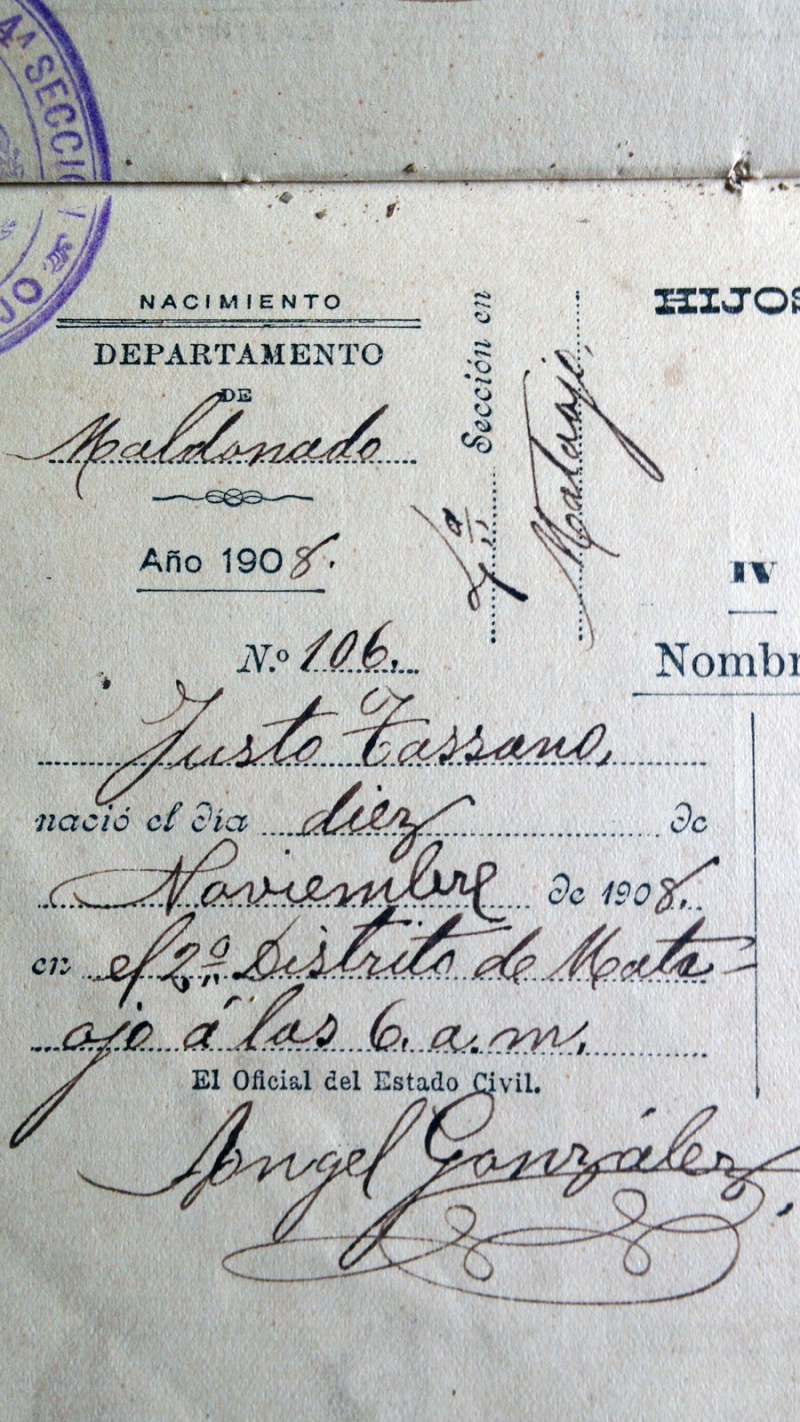 4ª SECCIÓ
JO
NACIMIENTO
DEPARTAMENTO
DE
Maldonado
Año 1908.
Sección en
Mataojo,
HIJOS
IV
Nombr
N.º 106.
Justo Tassano,
nació el día diez de
Noviembre de 1908.
en el 2º Distrito de Mata-
ojo á las 6. a. m.
El Oficial del Estado Civil.
Angel González